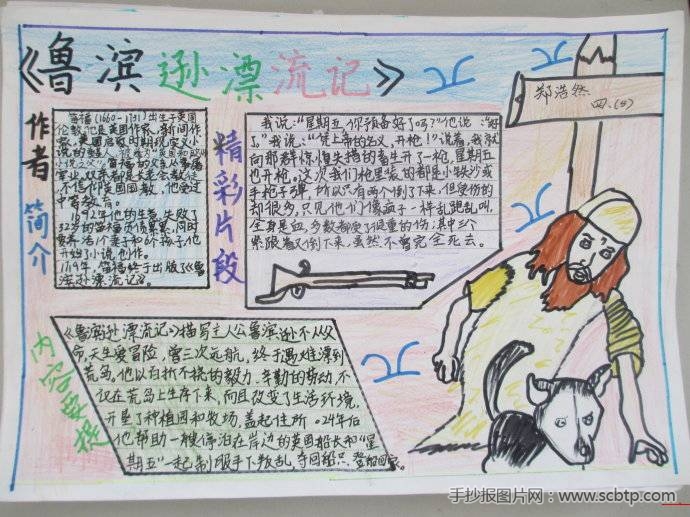 《鲁滨逊漂流记》
郑浩然
四、(5)
作者简介
笛福(1660-1731)出生于英国
伦敦,他是英国作家,新闻作
家,英国启蒙时期现实主义小
说的奠基人
营业,双亲都是长老会教徒
不信仰英国国教,他受过
中等教去。
1692年他的生意失败了
同时
要养活1个妻子和6个孩子,他
开始了小说创作。
1719年,笛福终于出版了《鲁
滨逊漂流记》。
精彩片段
我说:“星期五你预备好了吗?”他说:“好
了。”我说:“凭上帝的名义,开枪!”说着,我就
向那群惊惶失措的畜生开了一枪,星期五
也开枪。这次我们枪里装的都是小铁沙或
手枪子弹,所以只有两个倒了下来,但受伤的
却很多,只见他们像疯子一样乱跑乱叫,
全身是血,多数都受了很重的伤,其中三个
紧跟着又倒下来,虽然不曾完全死去。
内容梗概
《鲁滨逊漂流记》描写主人公鲁滨逊不从父
命,天生爱冒险,曾三次远航,终于遇难漂到
荒岛。他以百折不挠的毅力,辛勤的劳动,不
仅在荒岛上生存下来,而且改变了生活环境,
开垦了种植园和牧场,盖起住所。24年后
他帮助一艘停泊在岸边的英国船长和“星
期五”一起制服手下叛乱,夺回船只,登船回家。
手抄报图片网：www.scbtp.com